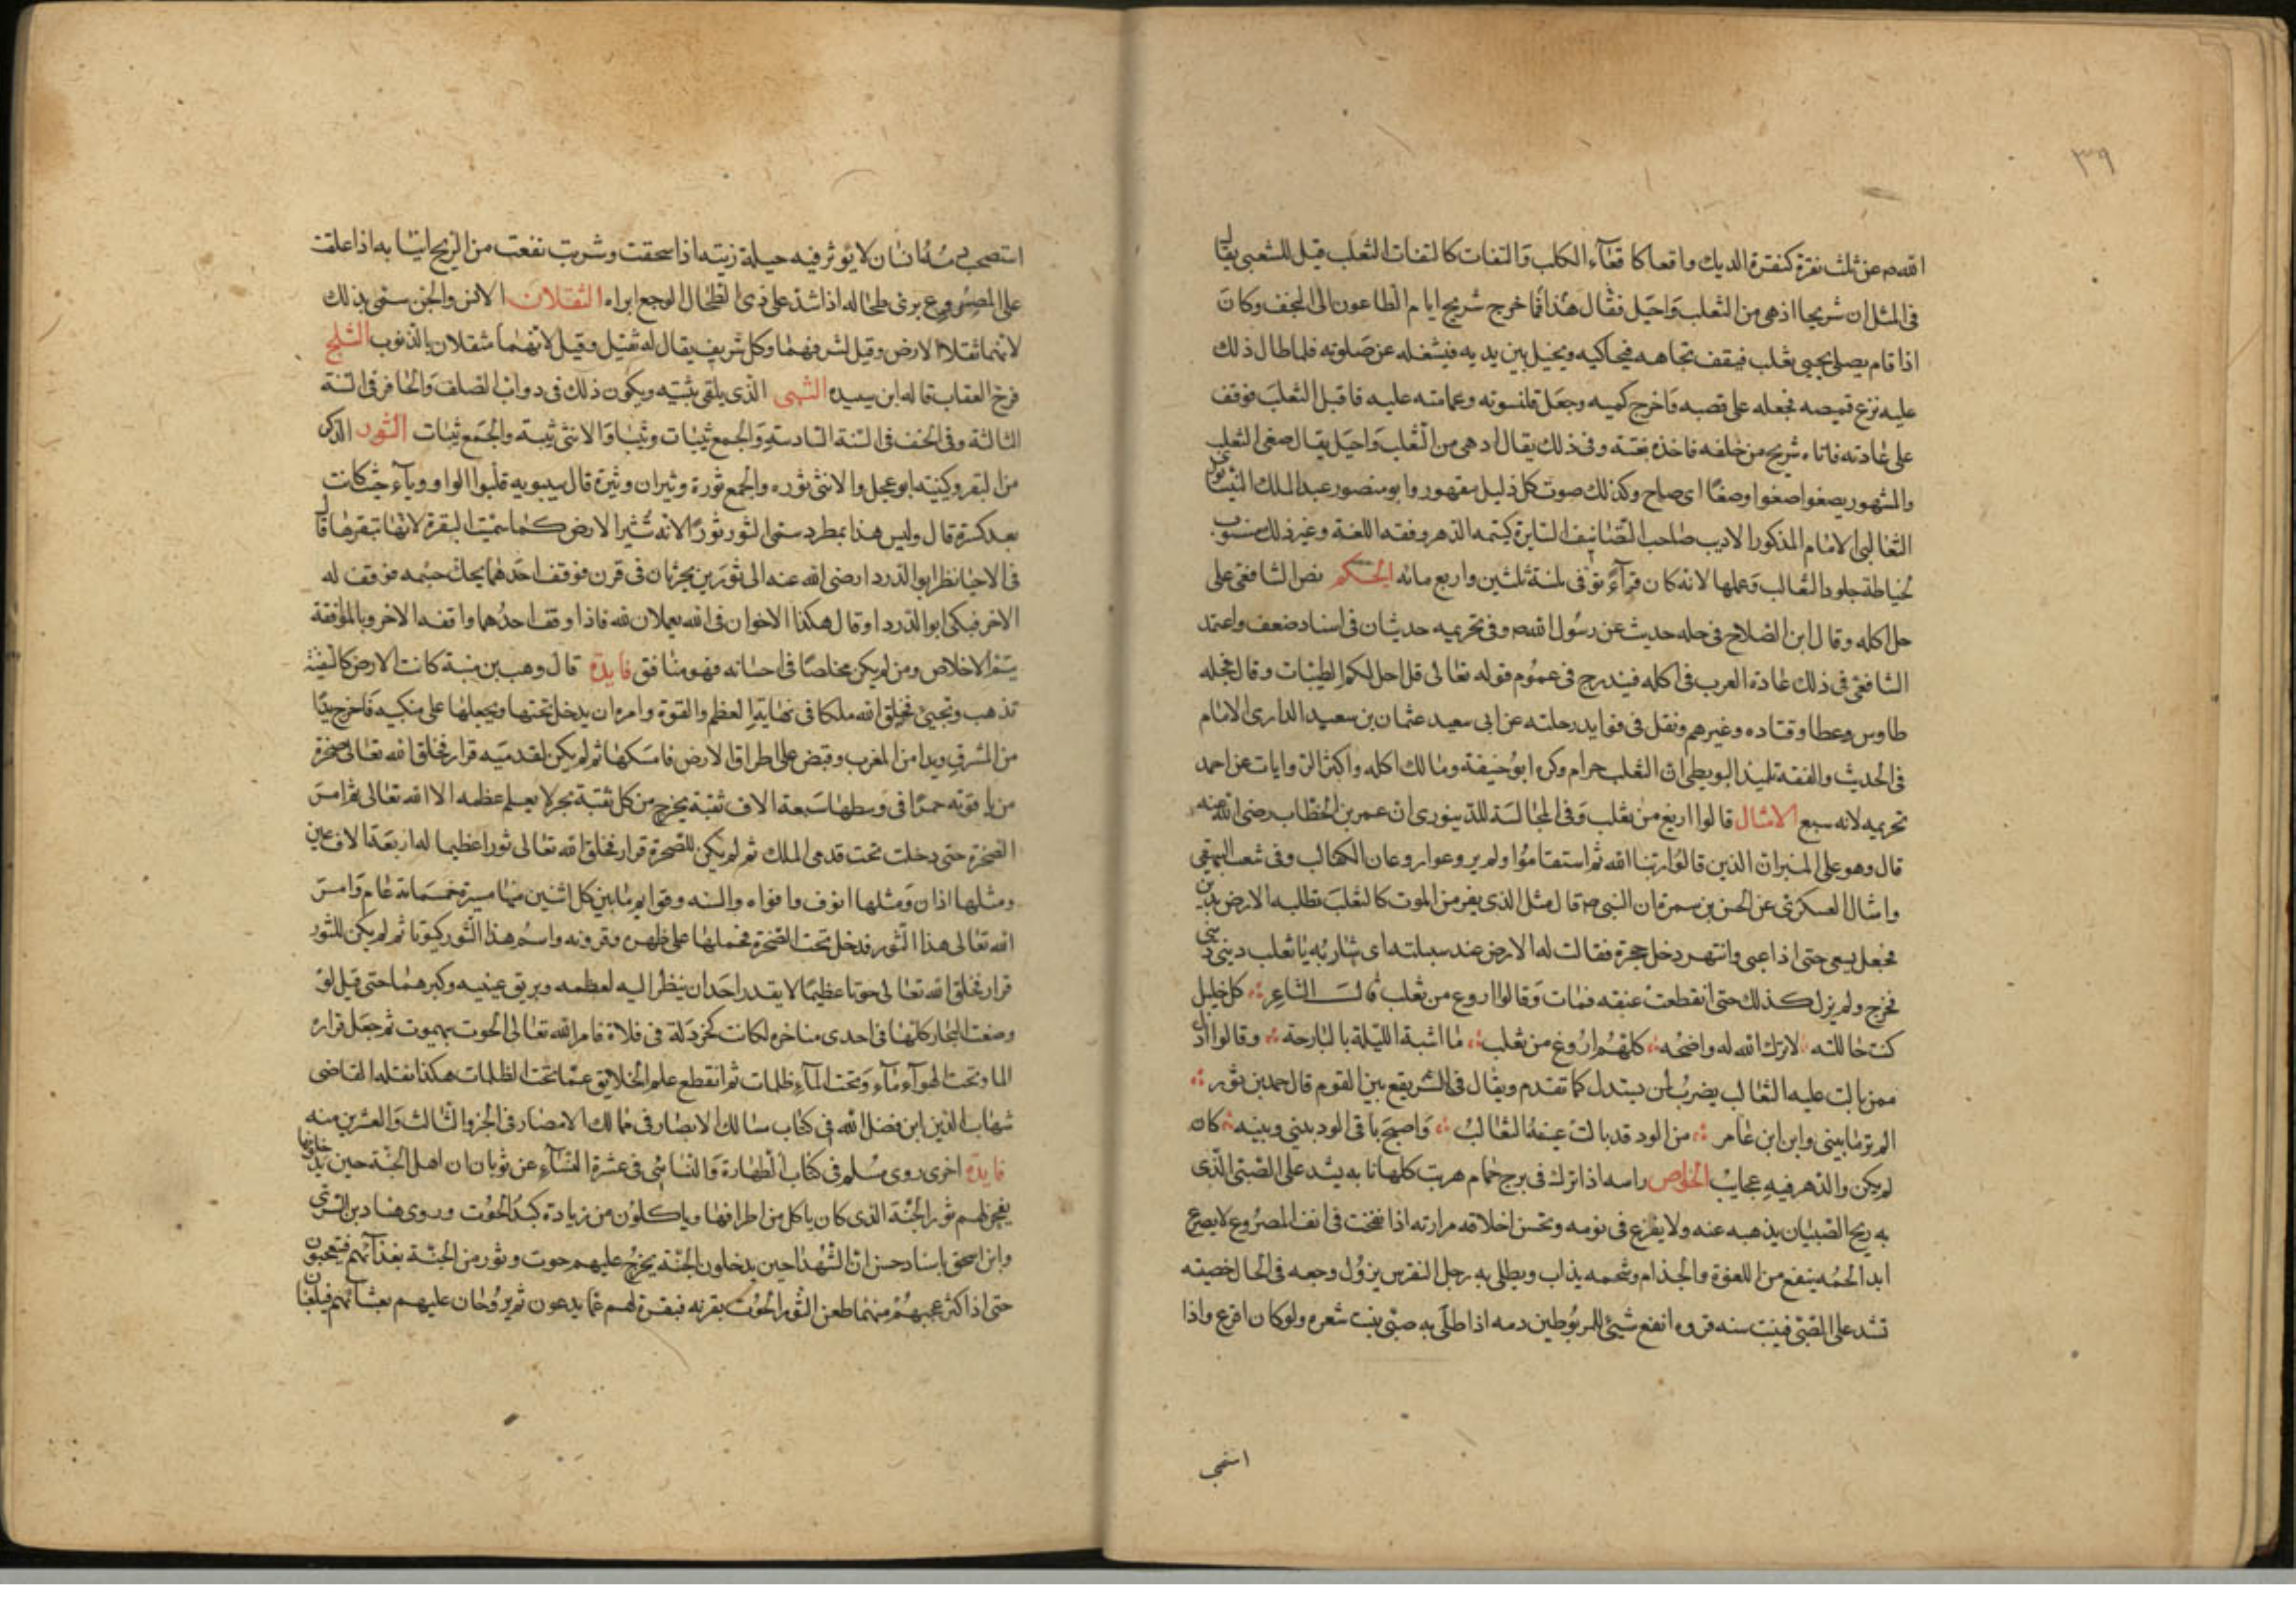 ٣٩
الله ص عن ثلث نقرة كنقرة الديك واقعا كاقعآء الكلب والتفات كالتفات الثعلب قيل للشعبي يقال
فى المثل ان شريحا ادهى من الثعلب واحيل فقال هذا فما خرج شريح ايام الطاعون الى النجف وكان
اذا قام يصلى يجيى ثعلب فيقف تجاهه فيحاكيه ويخيل بين يديه فيشغله عن صلوته فلما طال ذلك
عليه نزع قميصه فجعله على قصبه واخرج كميه وجعل قلنسوته وعمامته عليه فاقبل الثعلب فوقف
على عادته فاتاه شريح من خلفه فاخذه بغتة وفى ذلك يقال ادهى من الثعلب واحيل يقال صغى الثعلب
والمشهور يصغوا صغوا وصغا اى صاح وكذلك صوت كل ذليل مقهور وابو منصور عبد الملك النيسابورى
الثعالبى الامام المذكور الاديب صاحب التصانيف السايرة كيتمه الدهر وفقه اللغة وغير ذلك منسوب
لخياطة جلود الثعالب وعملها لانه كان فرآءً توفى لسنة ثلثين واربع مائه الحكم نص الشافعى على
حل اكله وقال ابن الصلاح فى حله حديث عن رسول الله ص وفى تحريمه حديثان فى اسناد ضعف واعتمد
الشافعى فى ذلك عادة العرب فى اكله فيندرج فى عموم قوله تعالى قل احل لكم الطيبات وقال بحله
طاوس وعطا وقتاده وغيرهم ونقل فى فوايد رحلته عن ابى سعيد عثمان بن سعيد الدارى الامام
فى الحديث والفقه تلميذ البويطى ان الثعلب حرام وكره ابو حنيفة ومالك اكله واكثر الروايات عن احمد
تحريمه لانه سبع الامثال قالوا اربغ من ثعلب وفى المجالسة للدينورى ان عمر بن الخطاب رضى الله عنه
قال وهو على المنبر ان الذين قالوا ربنا الله ثم استقاموا ولم يروعوا روعان الثعالب وفى شعب البيهقى
وامثال العسكرى عن الحسن بن سمرة ان النبى ص قال مثل الذى يفر من الموت كالثعلب تطلبه الارض بدين
فجعل يسعى حتى اذا عيى وانتهر دخل حجرة فقالت له الارض عند سبلته اى شاربه يا ثعلب دينى دينى
فخرج ولم يزل كذلك حتى انقطعت عنقه فمات وقالوا اروع من ثعلب قالت الشاعر كل خليل
كنت خاللته لا ترك الله له واضحه كلهم اروغ من ثعلب ما اشبة الليلة بالبارحة وقالوا اذل
ممن بالت عليه الثعالب يضرب لمن يستدل كما تقدم ويقال فى الشر يقع بين القوم قال حميد بن ثور
الم تر ما بينى وابن ابن عامر من الود قد بالت عينه الثعالب واصبح باقى الود بينى وبينه كان
لم يكن والدهر فيه عجايب الخواص راسه اذا ترك فى برج حمام هربت كلها نابه يشد على الصبى الذى
به ريح الصبيان يذهبه عنه ولا يفزع فى نومه وتحسن اخلاقه مرارته اذا نفخت فى انف المصروع لا يصرع
ابدا لحمه ينفع من اللعوة والجذام وشحمه يذاب ويطلى به رجل النقرس يزول وجعه فى الحال خصيته
تشد على الصبى فينبت سنه فروه انفع شيئ للمربوطين دمه اذا طلى به صبى ينبت شعره ولو كان اقرع واذا
استصحب دمه انسان لا يؤثر فيه حيلة زيته اذا سحقت وشربت نفعت من الريح انيابه اذا علقت
على المصروع برى طحاله اذا شد على ذى الطحال الوجع ابراه الثقلان الانس والجن سمى بذلك
لانهما ثقلا الارض وقيل لشرفهما وكل شريف يقال له ثقيل وقيل لانهما مثقلان بالذنوب الثلج
فرخ العقاب قاله ابن سيده الثنى الذى يلقى ثنيته ويكون ذلك فى دواب الضلف والحافر فى السنة
الثالثة وفى الخف فى السنة السادسة والجمع ثنيات وثنيا والانثى ثنية والجمع ثنيات الثور الذكر
من البقر وكنيته ابو عجل والانثى ثوره والجمع ثورة وثيران وثيرة قال سيبويه قلبوا الواو ويآء حيث كانت
بعد كسرة قال وليس هذا بمطرد سمى الثور ثورًا لانه تثير الارض كما سميت البقرة لانها تبقرها قال
فى الاحيا نظر ابو الدردا رضى الله عنه الى ثورين يحرثان فى قرن فوقف احدهما يحك جسمه فوقف له
الاخر فبكى ابو الدردا وقال هكذا الاخوان فى الله يعملان لله فاذا وقف احدهما واقفه الاخر وبالموافقة
يتم الاخلاص ومن لم يكن مخلصا فى احسانه فهو منافق فايدة قال وهب بن منبة كانت الارض كالسفينة
تذهب وتجيئ فخلق الله ملكا فى نهاية العظم والقوة وامره ان يدخل تحتها ويجعلها على منكبيه فاخرج يدًا
من المشرق ويدا من المغرب وقبض على اطراف الارض فامسكها ثم لم يكن لقدميه قرار فخلق الله تعالى صخرة
من ياقوته حمرًا فى وسطها سبعة الاف ثقبة يخرج من كل ثقبة بحر لا يعلم عظمه الا الله تعالى ثم امر
الصخرة حتى دخلت تحت قدمى الملك ثم لم يكن للصخرة قرار فخلق الله تعالى ثورا عظيما له اربعة الاف عين
ومثلها اذان ومثلها انوف وافواه والسنه وقوايم ما بين كل اثنين منها مسيرة خمسمائة عام وامر
الله تعالى هذا الثور فدخل تحت الصخرة فحملها على ظهره وقرونه واسم هذا الثور كيوتا ثم لم يكن للثور
قرار فخلق الله تعالى حوتا عظيمًا لا يقدر احد ان ينظر اليه لعظمه وبريق عينيه وكبرهما حتى قيل لو
وضعت البحار كلها فى احدى مناخره لكانت كخردلة فى فلاة فامر الله تعالى الحوت بهموت ثم جعل قراره
الما وتحت الهوآء مآء وتحت المآء ظلمات ثم انقطع علم الخلايق عما تحت الظلمات هكذا نقله القاضى
شهاب الدين ابن فضل الله فى كتاب مسالك الابصار فى ممالك الامصار فى الجزو الثالث والعشرين منه
فايدة اخرى روى مسلم فى كتاب الطهارة والنسائى فى عشرة النسآء عن ثوبان ان اهل الجنة حين يدخلونها
ينحر لهم ثور الجنة الذى كان ياكل من اطرافها وياكلون من زيادة كبد الحوت وروى هناد بن السرى
وابن اسحق باسناد حسن ان الشهدا حين يدخلون الجنة يخرج عليهم حوت وثور من الجنة بغدآئهم فيلعبون
حتى اذا كثر عجبهم منهما طعن الثور الحوت بقرنه فبقرة لهم عما يدعون ثم يروحان عليهم بعشآئهم فيلعبان
استصحب